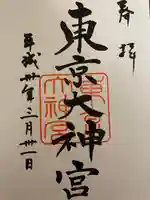 奉拝
東京大神宮
東京大神宮
平成卅年三月卅一日